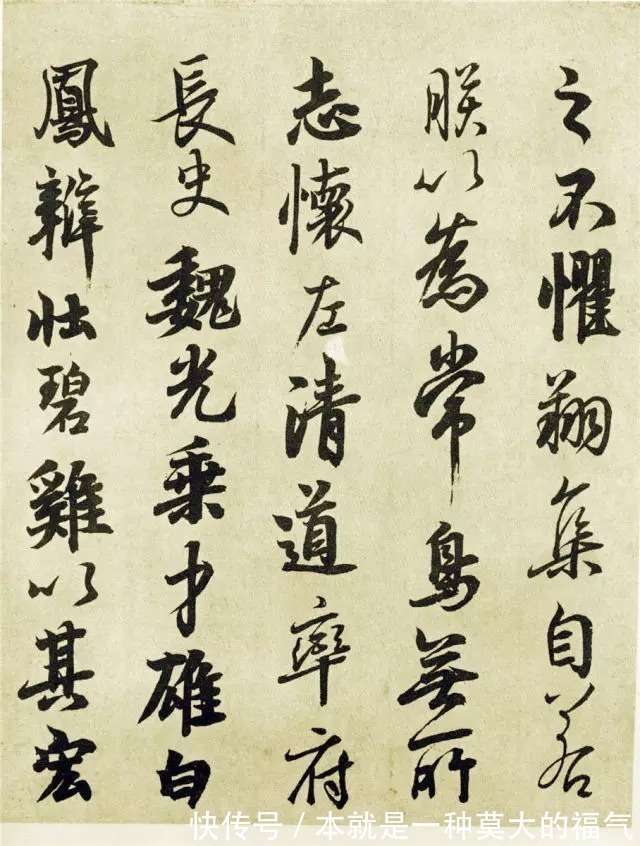 之不懼翔集自若
朕以為常鳥無所
志懷左清道率府
長史魏光乘才雄白
鳳辯壯碧雞以其宏
快传号 / 本就是一种莫大的福气